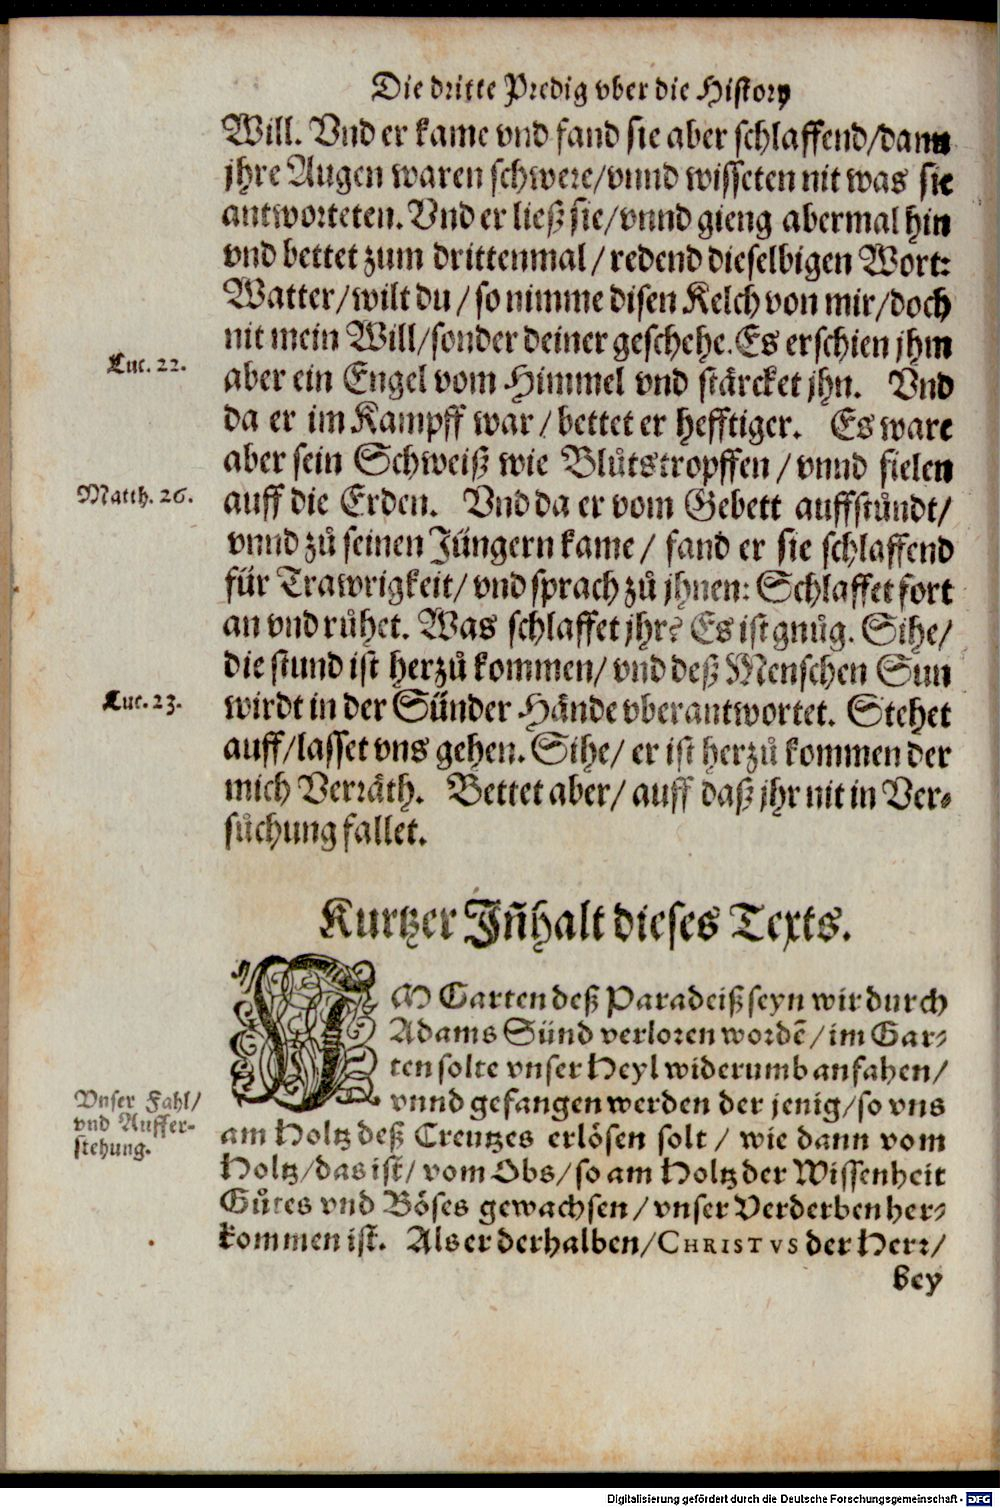 Die dritte Predig vber die History
Will. Vnd er kame vnd fand sie aber schlaffend/dann
jhre Augen waren schwere/vnnd wisseten nit was sie
antworteten. Vnd er ließ sie/vnnd gieng abermal hin
vnd bettet zum drittenmal / redend dieselbigen Wort:
Vatter/wilt du / so nimme disen Kelch von mir/doch
nit mein Will/sonder deiner geschehe. Es erschien jhm
Luc. 22.
aber ein Engel vom Himmel vnd stärcket jhn. Vnd
da er im Kampff war / bettet er hefftiger. Es ware
aber sein Schweiß wie Blůtstropffen / vnnd fielen
Matth. 26.
auff die Erden. Vnd da er vom Gebett auffstůndt/
vnnd zů seinen Jüngern kame / fand er sie schlaffend
für Trawrigkeit/ vnd sprach zů jhnen: Schlaffet fort
an vnd růhet. Was schlaffet jhr? Es ist gnůg. Sihe/
die stund ist herzů kommen/ vnd deß Menschen Sun
Luc. 23.
wirdt in der Sünder Hände vberantwortet. Stehet
auff/lasset vns gehen. Sihe/ er ist herzů kommen der
mich Verräth. Bettet aber/ auff daß jhr nit in Ver-
sůchung fallet.
Kurtzer Jñhalt dieses Texts.
JM Garten deß Paradeiß seyn wir durch
Adams Sünd verloren wordē/im Gar-
ten solte vnser Heyl widerumb anfahen/
Vnser Fahl/
vnd Auffer-
stehung.
vnnd gefangen werden der jenig/so vns
am Holtz deß Creutzes erlösen solt / wie dann vom
Holtz/das ist/ vom Obs/so am Holtz der Wissenheit
Gůtes vnd Böses gewachsen/vnser Verderben her-
kommen ist. Als er derhalben/CHRISTVS der Herr/
bey
Digitalisierung gefördert durch die Deutsche Forschungsgemeinschaft - DFG